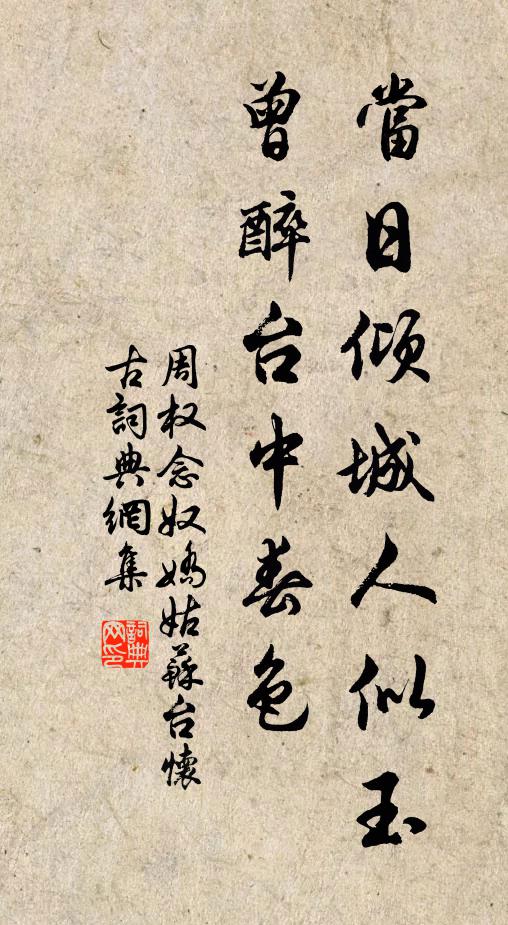 當日傾城人似玉
曾醉台中春色
周权念奴嬌姑蘇台懷
古詞典網集
詞典
网印